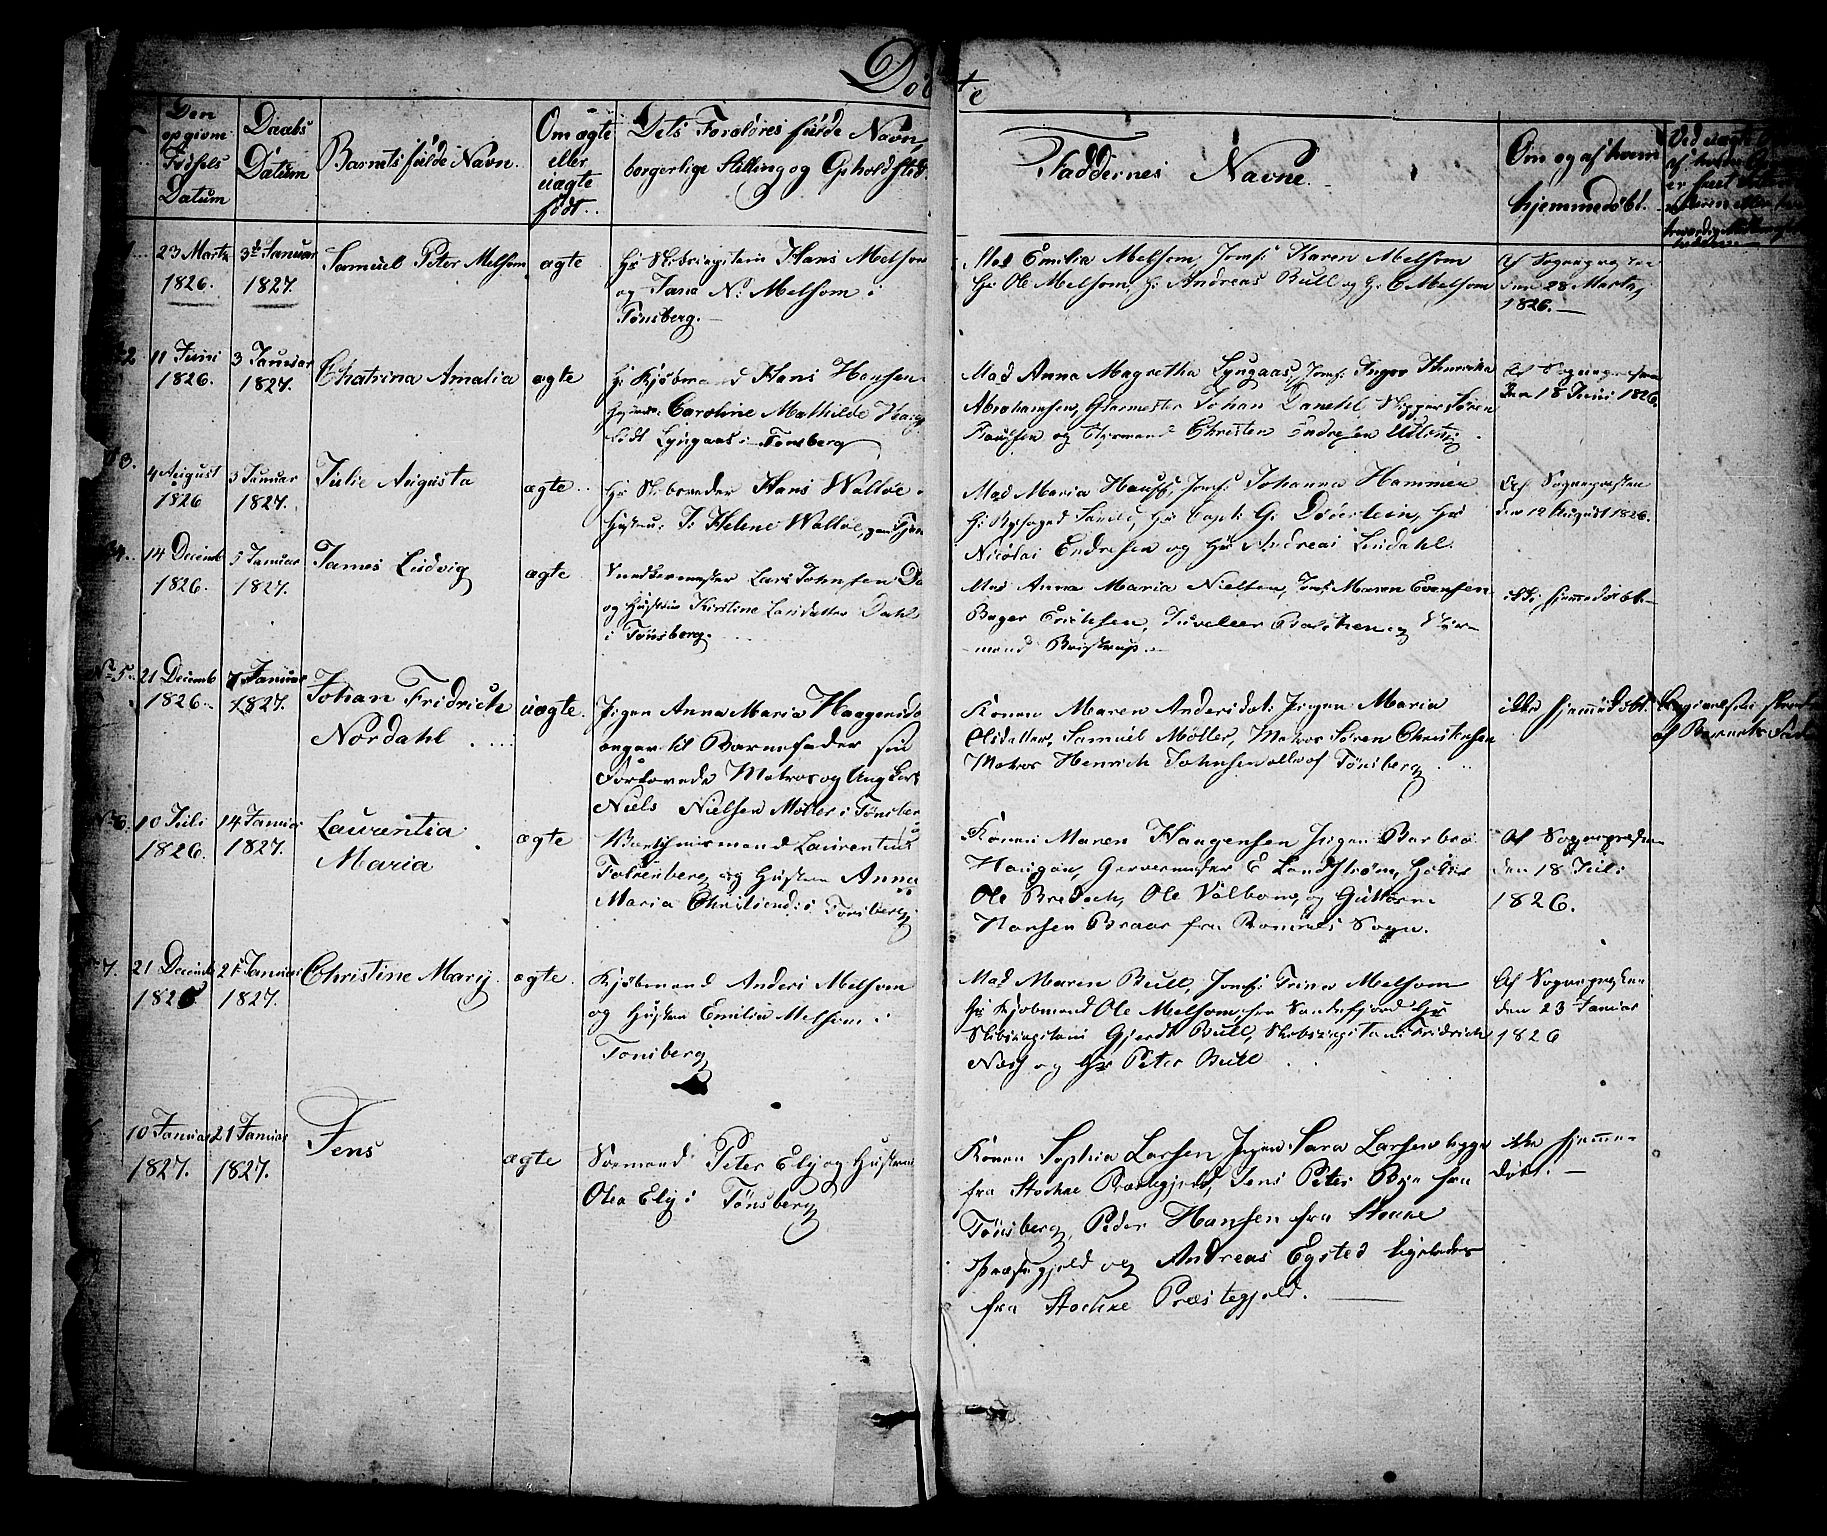 Døbte
Den opgivne Fødsels Datum
Daabs Datum
Barnets fulde Navn.
Om ægte eller uægte født.
Dets Forældres fulde Navn, borgerlige Stilling og Opholdsted
Faddernes Navne.
Om og af hvem hjemmedøbt.
23 Marts 1826.
3die Januar 1827.
Samuel Peter Melsom
ægte
Hr Skibscapitain Hans Melsom
og Jane N: Melsom i
Tønsberg.
Mad Emilia Melsom, Jomf: Karen Melsom
Hr Ole Melsom, Hr Andreas Bull og Hr C Melsom
Af Sognepræsten
den 28 Marts
1826.
2
11 Juni 1826.
3 Januar 1827.
Chatrina Amalia
ægte
Hr Kjøbmand Hans Hansen
Caroline Mathilde
født Lyngaas i Tønsberg
Mad Anna Magretha Lyngaas, Jomf: Inger Henrika
Abrahamsen, Glarmester Johan Danehl, Skipper Søren
og Styrmand Christen Endresen
Af Sognepræsten
den 18 Juni 1826.
3.
4 August 1826
5 Januar 1827.
Julie Augusta
ægte
Hr Skibsreder Hans Walløe
Hustru J: Helene Walløe,
Mad Maria Hauff, Jomf: Johanna Hammer
Hr Byfoged Hr Capt: G: Døderlein, Hr
Nicolai Endresen og Hr Andreas Lindahl.
Af Sognepræsten
den 12 August 1826.
4.
14 Decemb 1826.
5 Januar 1827.
James Ludvig
ægte
Snedkermester Lars Johnsen
og Hustru Kirstine Larsdatter Dahl
i Tønsberg.
Mad Anna Maria Nielsen, Jomf: Maren Evensen
Bager Erichsen, og Styr-
mand Bristrup.
ikke hjemmedøbt.
No 5.
21 Decemb 1826.
7 Januar 1827.
Johan Fridrich
Nordahl
uægte.
Pigen Anna Maria Haagensd
angav til Barnefader sin
Forlovede Matros og Ung Karl
Niels Nielsen Møller i Tønsberg
Konen Maren Andersdat: Pigen Maria
Olsdatter, Samuel Møller, Matros Søren Christensen
Matros Henrich Johnsen alle af Tønsberg
ikke hjemmedøbt.
af Barnets Fader
No 6.
10 Juli 1826.
14 Januar 1827.
Laurentia
Maria
ægte
Laurentius
Falkenberg og Hustru Anna
Maria i Tønsberg
Konen Maren Haagensen Pigen Barbro
Haugan, Garversvend E Landstrøm,
Ole Bredoch, Ole Valbom, og Guttorm
Hansen Braar fra Ramnes Sogn.
Af Sognepræsten
den 18 Juli
1826.
7.
21 Decemb 1826
21de Januar 1827.
Christine Marij
ægte
Kjøbmand Anders Melsom
og Hustru Emilia Melsom i
Tønsberg
Mad Maren Bull, Jomf: Trina Melsom
Hr Kjøbmand Ole Melsom, fra Sandefjord Hr
Skibscapitain Gjerdt Bull, Skibscapitain Fridrich
Næss og Hr Peter Bull
Af Sognepræsten
den 23 Januar
1826
10 Januar 1827.
21 Januar 1827.
Jens
ægte
Sømand Peter Elij og Hustru
Olea Elij i Tønsberg
Konen Sophia Larsen, Pigen Sara Larsen begge
fra Stokke Præstegjeld, Jens Peter Bye fra
Tønsberg, Peder Hansen fra Stokke
Præstegjeld og Andreas Egsted ligeledes
fra Stokke Præstegjeld.
ikke hjemme-
døbt.